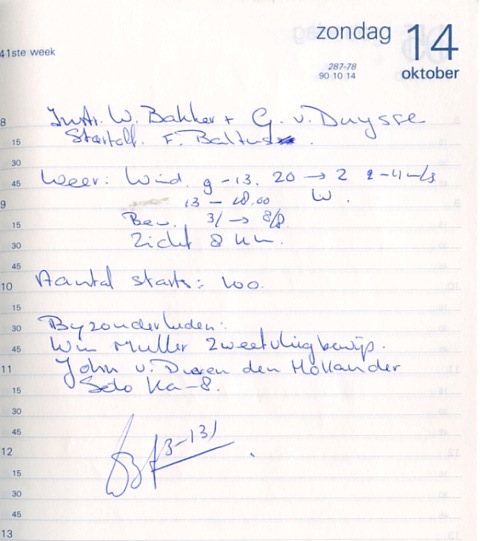 zondag 14
41ste week
287-78
90 10 14
oktober
8
Instr. W. Bakker + G. v. Duysse
15
Startoff. F. Baltus
30
45
Weer: Wind. 9-13. 20 → 2 2-4 m/s
9
13 - 18.00 W.
15
Bew. 3/ → 8/8
30
Zicht 8 km.
45
10
Aantal starts: 100.
15
30
Byzonderheden:
45
Wim Muller Zweefvliegbewijs.
11
John v. Dueren den Hollander
15
Solo Ka-8.
30
45
12
15
30
45
13